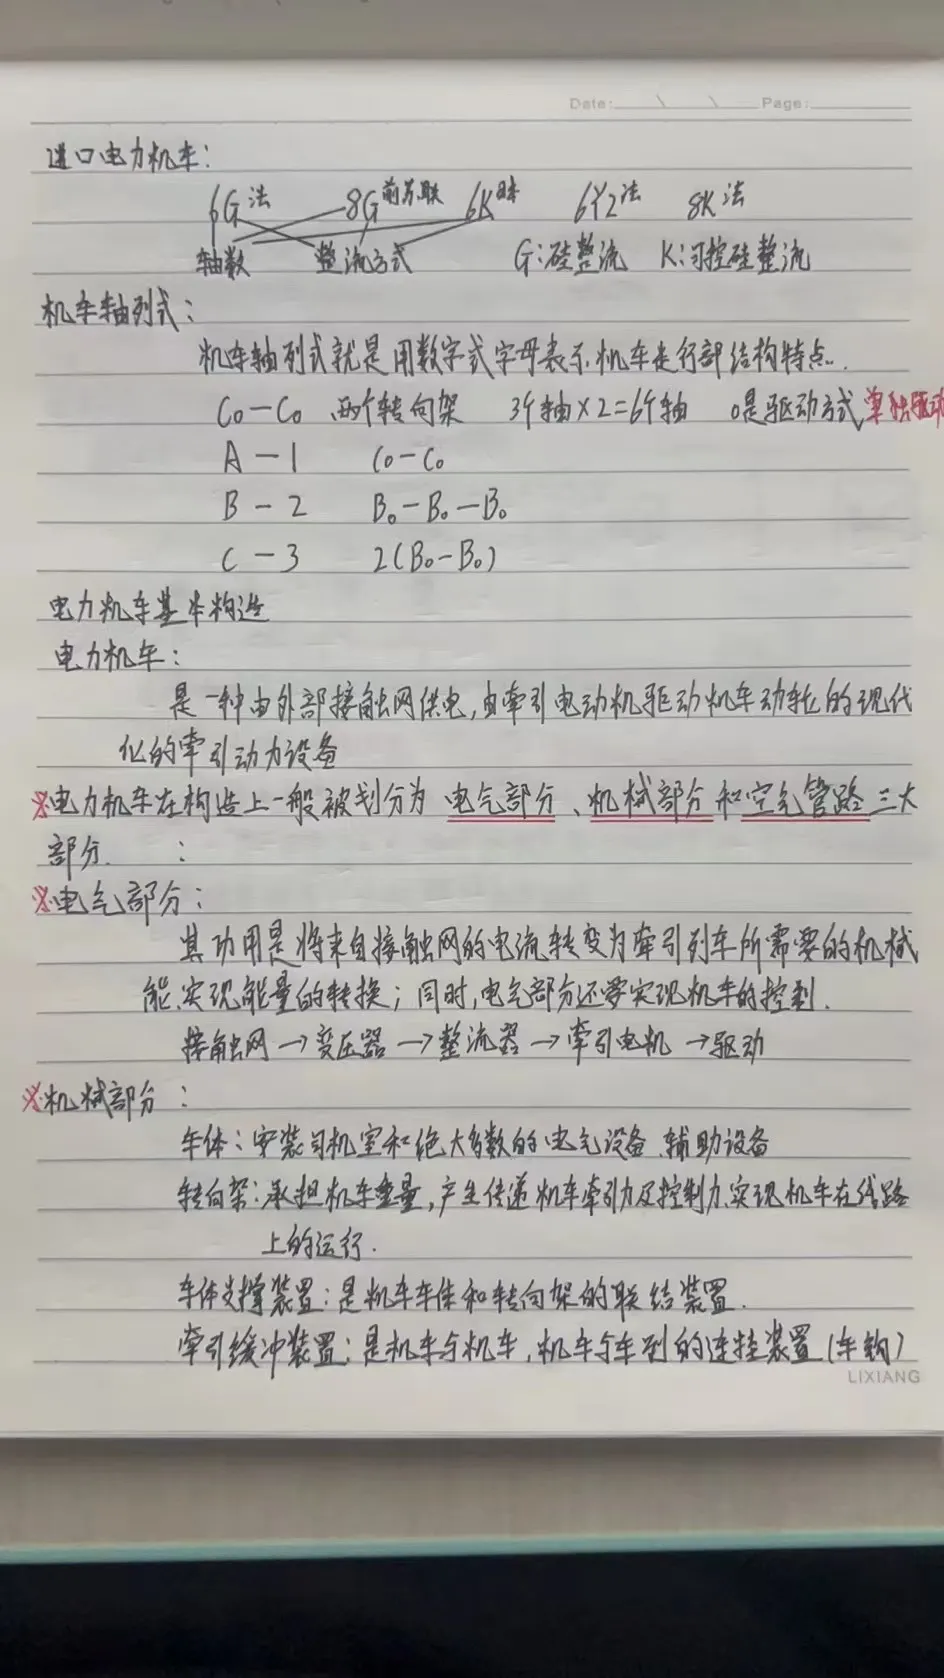 Date: \ \ Page:
进口电力机车:
6G法 8G前苏联 6K日本 6Y2法 8K法
轴数 整流方式 G:硅整流 K:可控硅整流
机车轴列式:
机车轴列式就是用数字式字母表示机车走行部结构特点.
C₀-C₀ 两个转向架 3个轴×2=6个轴 0是驱动方式 单独驱动
A-1 C₀-C₀
B-2 B₀-B₀-B₀
C-3 2(B₀-B₀)
电力机车基本构造
电力机车:
是一种由外部接触网供电,由牵引电动机驱动机车动轮的现代
化的牵引动力设备
※电力机车在构造上一般被划分为 电气部分、机械部分和空气管路三大
部分. :
※电气部分:
其功用是将来自接触网的电流转变为牵引列车所需要的机械
能、实现能量的转换;同时,电气部分还要实现机车的控制.
接触网→变压器→整流器→牵引电机→驱动
※机械部分:
车体:安装司机室和绝大多数的电气设备、辅助设备
转向架:承担机车重量,产生传递机车牵引力及控制力、实现机车在线路
上的运行.
车体支撑装置:是机车车体和转向架的联结装置.
牵引缓冲装置:是机车与机车,机车与车列的连挂装置(车钩)
LIXIANG